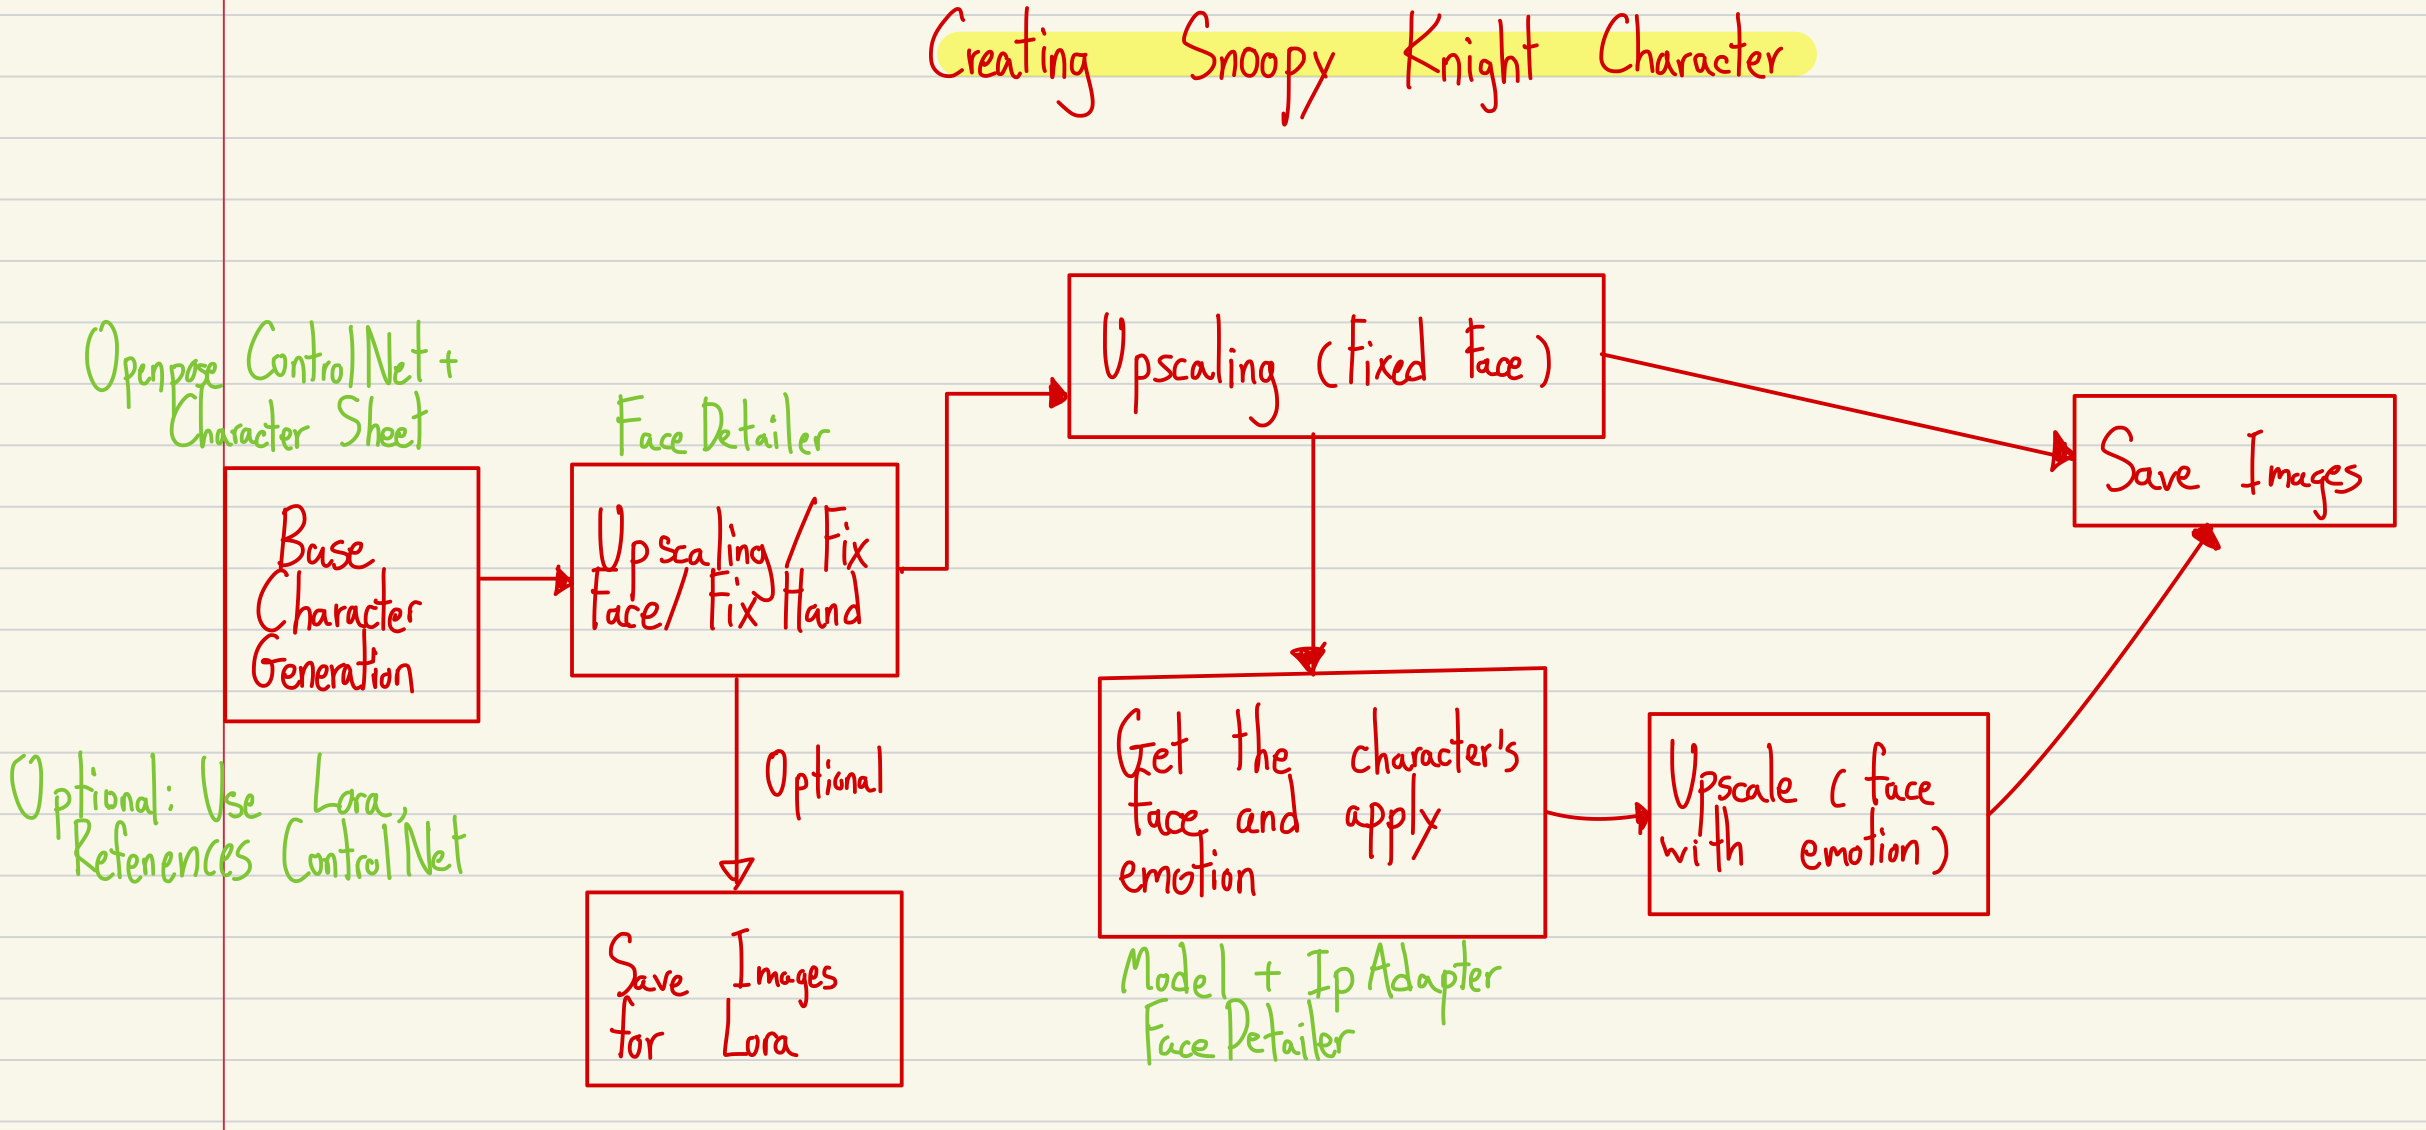 Creating Snoopy Knight Character
Openpose ControlNet +
Character Sheet
Base
Character
Generation
Optional: Use Lora,
Refenences ControlNet
Face Detailer
Upscaling/Fix
Face/Fix Hand
Optional
Save Images
for Lora
Upscaling (Fixed Face)
Get the character's
face and apply
emotion
Model + Ip Adapter
Face Detailer
Upscale (face
with emotion)
Save Images